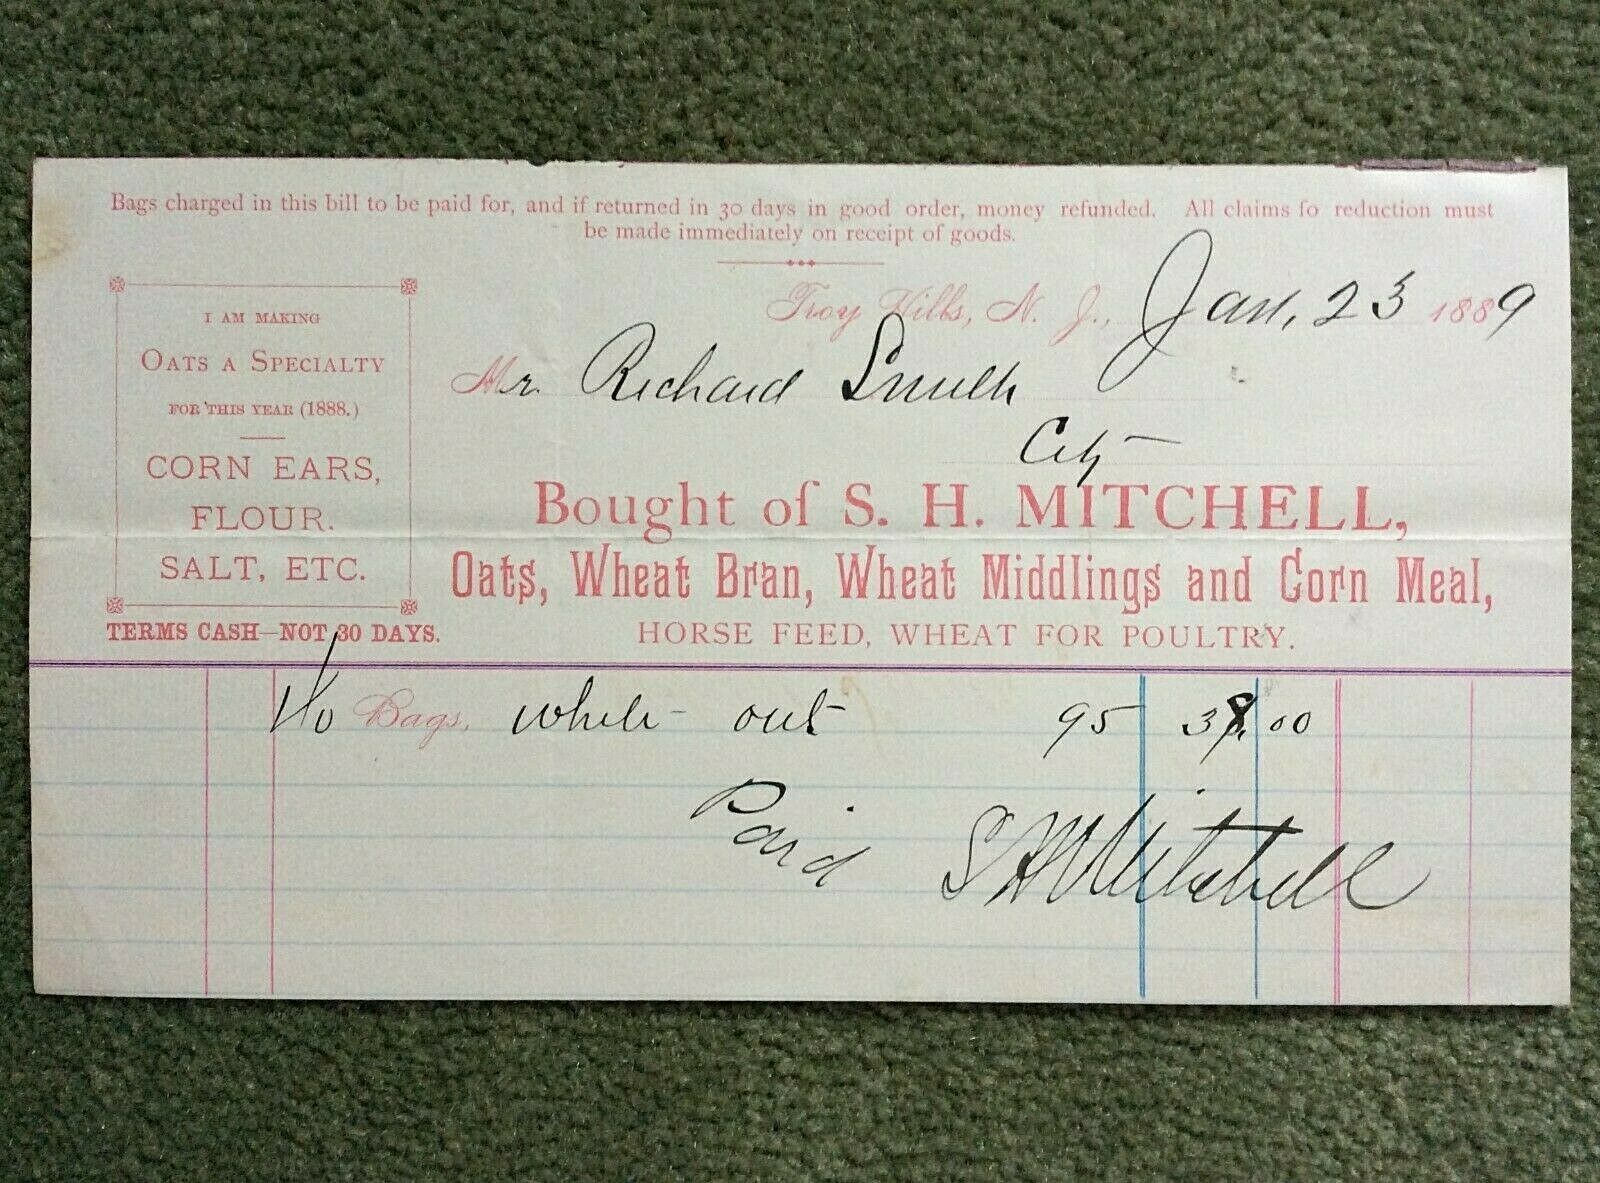 Bags charged in this bill to be paid for, and if returned in 30 days in good order, money refunded. All claims fo reduction must
be made immediately on receipt of goods.
Troy Hills, N. J., Jan, 23 1889
Mr. Richard Smith
City
I AM MAKING
OATS A SPECIALTY
FOR THIS YEAR (1888.)
CORN EARS,
FLOUR.
SALT, ETC.
TERMS CASH—NOT 30 DAYS.
Bought of S. H. MITCHELL,
Oats, Wheat Bran, Wheat Middlings and Corn Meal,
HORSE FEED, WHEAT FOR POULTRY.
40 Bags, white oats 95 38.00
Paid S H Mitchell